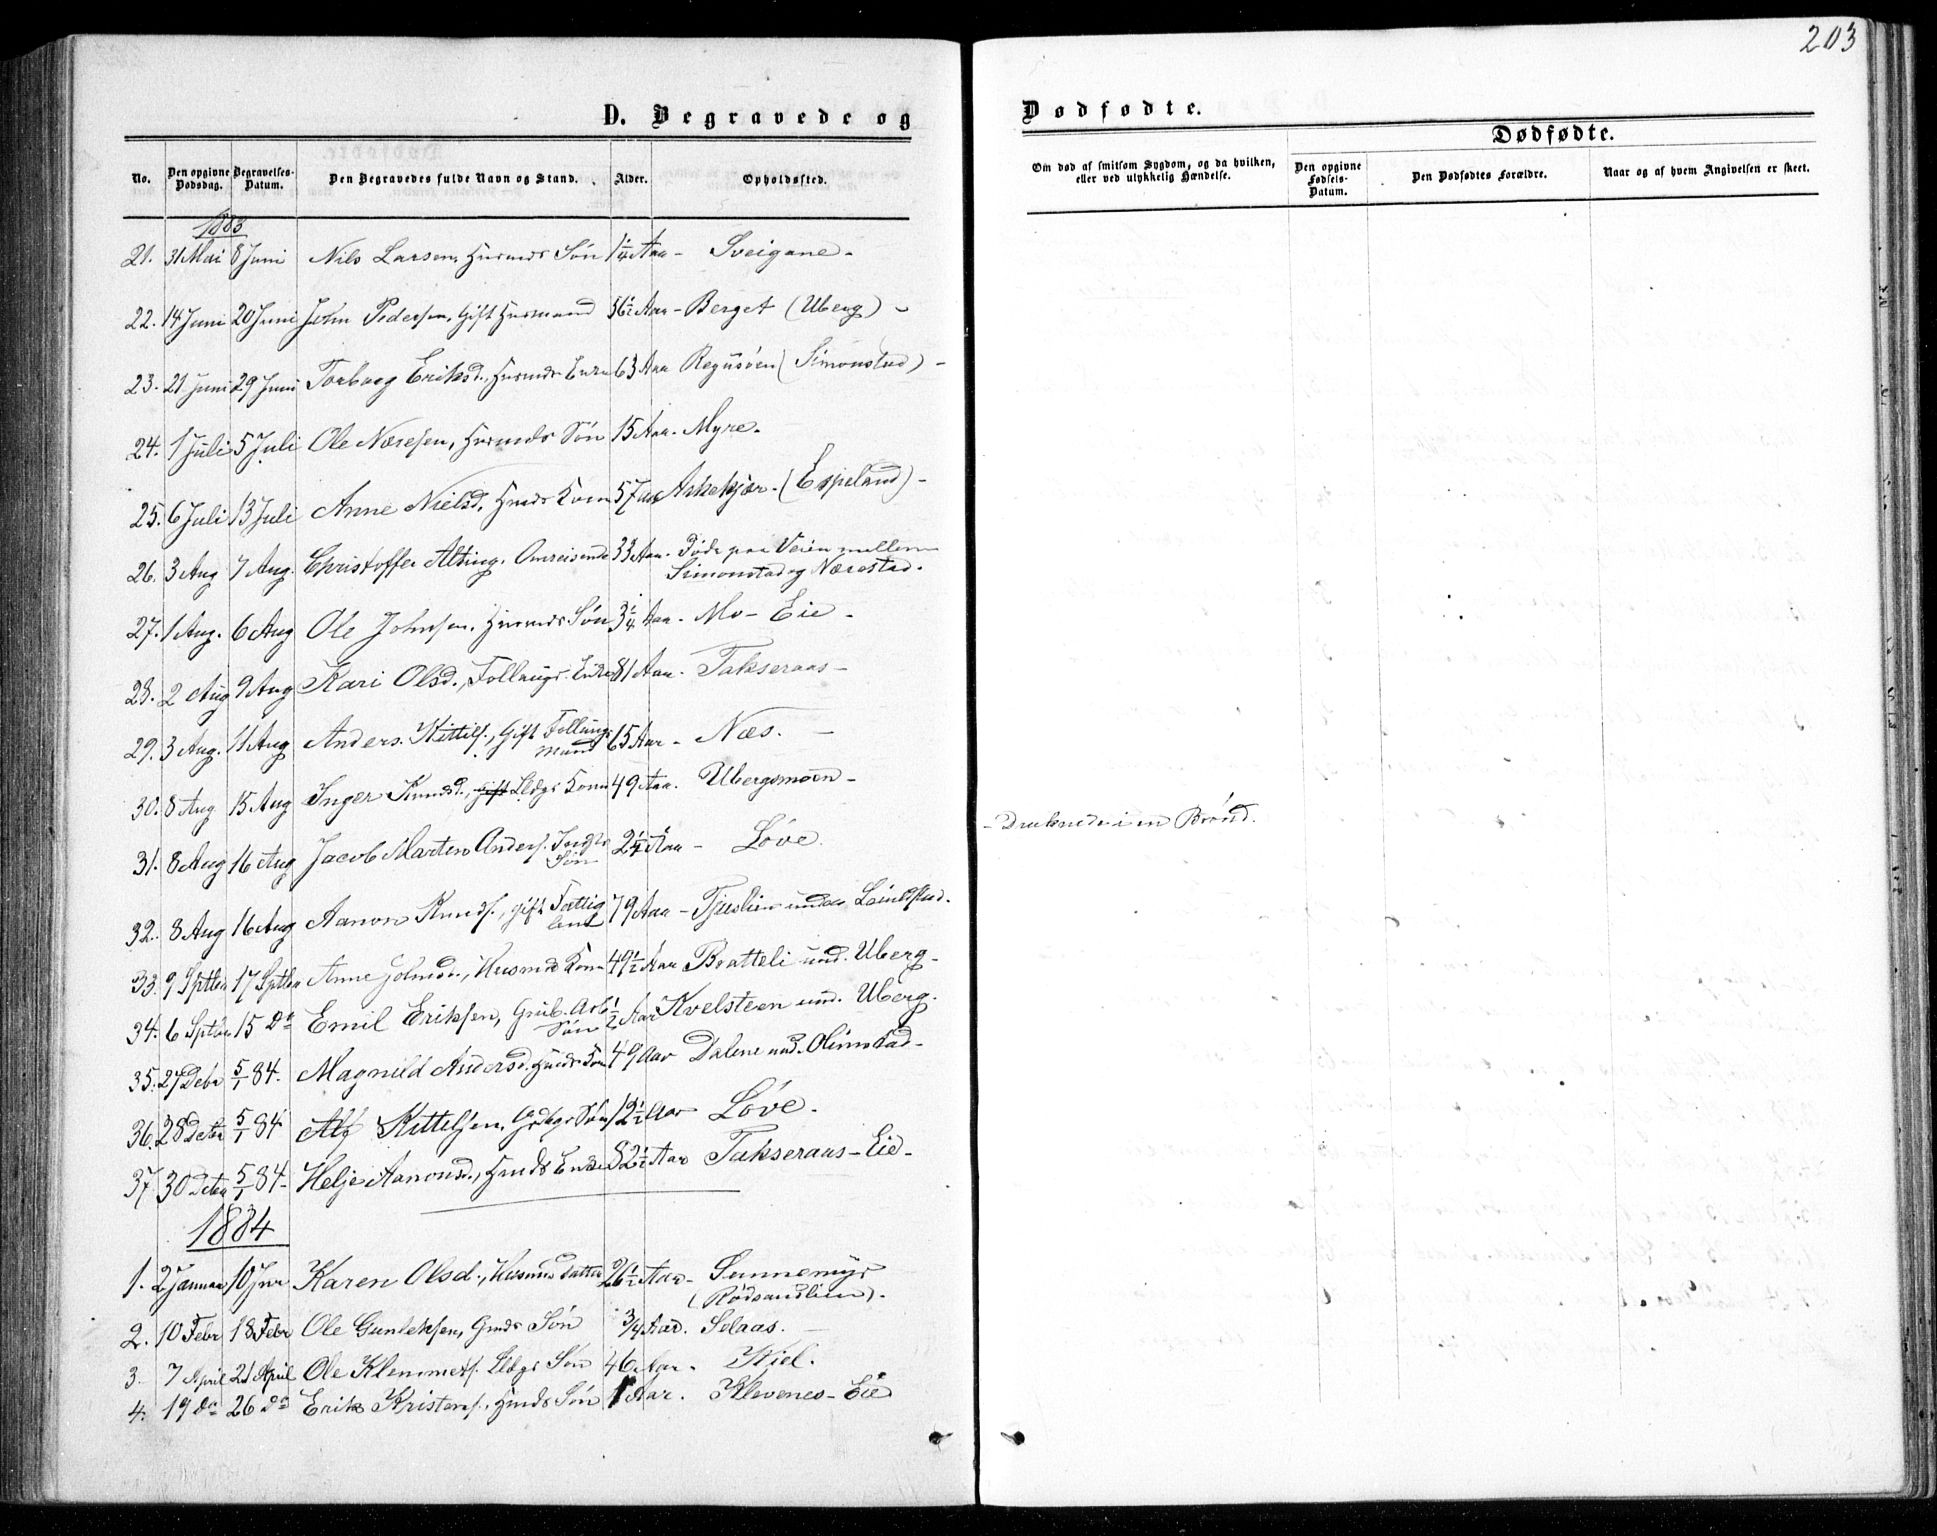 203
D. Begravede og Dødfødte.
Dødfødte.
No. Den opgivne Dødsdag. Begravelses-Datum. Den Begravedes fulde Navn og Stand. Alder. Opholdssted.
Om død af smitsom Sygdom, og da hvilken, eller ved ulykkelig Hændelse. Den opgivne Fødsels-Datum. Den Dødfødtes Forældre. Naar og af hvem Angivelsen er skeet.
1883
21. 31 Mai 8 Juni Nils Larsen, Husmds Søn 1 1/4 Aar - Sveigane.
22. 14 Juni 20 Juni John Pedersen, Gift Husmand 56 1/2 Aar - Berget (Uberg) -
23. 21 Juni 29 Juni Torborg Eriksd., Husmds Enke 63 Aar (Simonstad) -
24. 1 Juli 5 Juli Ole Næresen, Husmds Søn 15 Aar. Myre.
25. 6 Juli 13 Juli Anne Nielsd. Hmds Kone 57 Aar Askekjær. (Espeland) -
26. 3 Aug 7 Aug. Christoffer Alting. Omreisende 33 Aar. Døde paa Veien mellem
Simonstad og Nærestad.
27. 1 Aug. 6 Aug Ole Johnsen. Husmds Søn 3 1/4 Aar. Mo-Eie -
28. 2 Aug 9 Aug Kari Olsd., Follaugs Enke 81 Aar. Takseraas -
29. 3 Aug. 11 Aug Anders Kittils., Gift Follaugs
mand 65 Aar - Næs. -
30. 8 Aug 15 Aug Inger Knudsd., gift Lldgs Kone 49 Aar. Ubergsmoen -
31. 8 Aug 16 Aug Jacob Marten Anders. Indts
Søn 2 1/4 Aar - Løve. - Druknede i en Brønd.
32. 8 Aug 16 Aug Aanon Knuds., gift Fattig
lem 79 Aar - Tjuslien under Leivestad.
33. 9 Sptbr 17 Sptbr Anne Johnsd., Husmds Kone 49 1/2 Aar Bratteli und. Uberg -
34. 6 Sptbr 15 Do Emil Eriksen, Grub. Arb
Søn 1/2 Aar Kvelsteen und. Uberg.
35. 27 Debr 5/1 84. Magnild Andersd. Hmds Kone 49 Aar Dalene und. Olimstad -
36. 28 Debr 5/1 84 Alf Kittelsen, Grdbgs Søn 12 1/2 Aar Løve.
37 30 Debr 5/1 84 - Helje Aanonsd., Hmds Enke 82 1/2 Aar Takseraas - Eie -
1884
1. 2 Januar 10 Jnr Karen Olsd., Husmds datter 26 1/2 Aar - Sunnemyr
(Rødsandlien).
2. 10 Febr 18 Febr Ole Gunleksen, Gmds Søn 3/4 Aar. Selaas. -
3. 7 April 21 April Ole Klemmets. Lldgs Søn 46 Aar. Kiel.
4. 19 do 26 do Erik Kristens., Hmds Søn 1 Aar. Klevenes - Eie